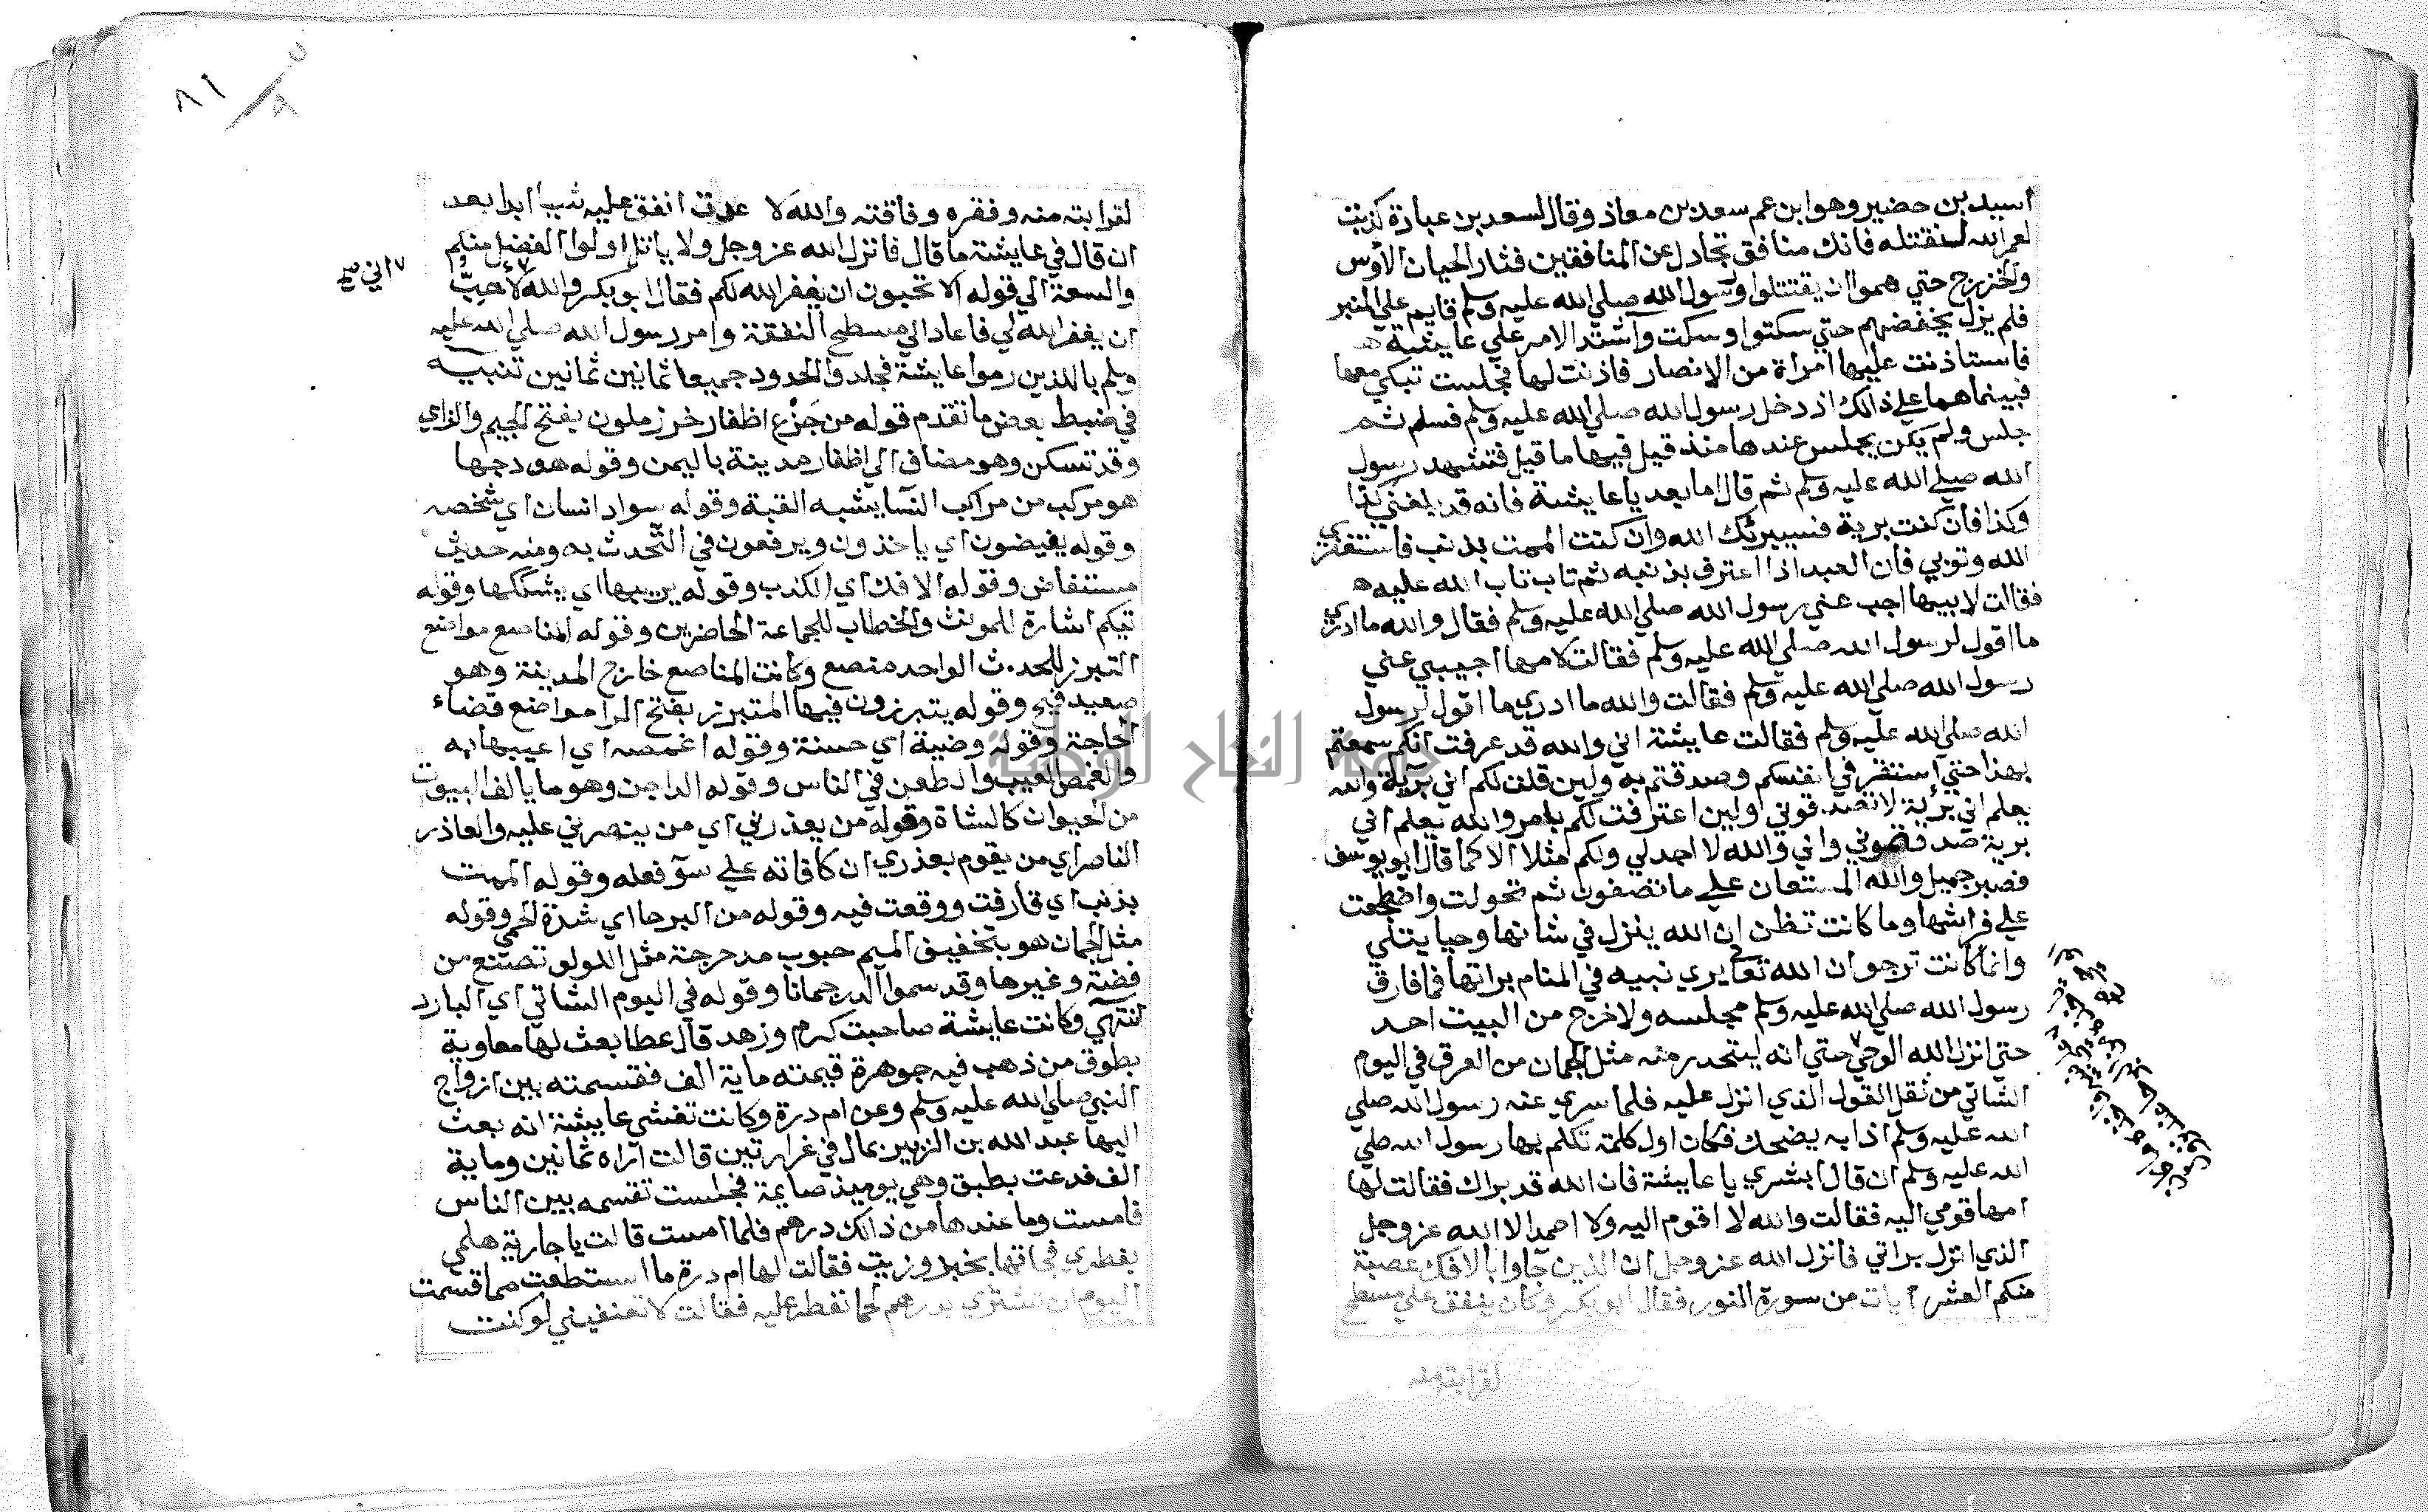 اسيد بن حضير وهو ابن عم سعد بن معاذ وقال لسعد بن عبادة كذبت
لعمر الله لنقتلنه فانك منافق تجادل عن المنافقين فثار الحيان الأوس
والخزرج حتي هموا ان يقتتلوا ورسول الله صلي الله عليه وسلم قايم علي المنبر
فلم يزل يخفضهم حتي سكتوا وسكت واشتد الامر علي عايشة
فاستاذنت عليها امراة من الانصار فاذنت لها فجلست تبكي معها
فبينما هما علي ذالك اذ دخل رسول الله صلي الله عليه وسلم فسلم ثم
جلس ولم يكن يجلس عندها منذ قيل فيها ما قيل فتشهد رسول
الله صلي الله عليه وسلم ثم قال اما بعد يا عايشة فانه قد بلغني كذا
وكذا فان كنت برية فسيبرئك الله وان كنت الممت بذنب فاستغفري
الله وتوبي فان العبد اذا اعترف بذنبه ثم تاب تاب الله عليه
فقالت لابيها اجب عني رسول الله صلي الله عليه وسلم فقال والله ما ادري
ما اقول لرسول الله صلي الله عليه وسلم فقالت لامها اجيبي عني
رسول الله صلي الله عليه وسلم فقالت والله ما ادري ما اقول لرسول
الله صلي الله عليه وسلم فقالت عايشة اني والله قد عرفت انكم سمعتم
بهذا حتي استقر في انفسكم وصدقتم به ولين قلت لكم اني بريئة والله
يعلم اني بريئة لا تصدقوني ولين اعترفت لكم بامر والله يعلم اني
برية صدقتموني واني والله لا اجد لي ولكم مثلا الا كما قال ابو يوسف
فصبر جميل والله المستعان علي ما تصفون ثم تحولت واضطجعت
علي فراشها وما كانت تظن ان الله ينزل في شانها وحيا يتلي
وانما كانت ترجو ان الله تعالي يري نبيه في المنام براتها فما فارق
رسول الله صلي الله عليه وسلم مجلسه ولا خرج من البيت احد
حتي انزل الله الوحي حتي انه ليتحدر منه مثل الجمان من العرق في اليوم
الشاتي من ثقل القول الذي انزل عليه فلما سري عنه رسول الله صلي
الله عليه وسلم اذا به يضحك فكان اول كلمة تكلم بها رسول الله صلي
الله عليه وسلم ان قال ابشري يا عايشة فان الله قد براك فقالت لها
امها قومي اليه فقالت والله لا اقوم اليه ولا احمد الا الله عز وجل
الذي انزل براتي فانزل الله عز وجل ان الذين جآوا بالافك عصبة
منكم العشر آيات من سورة النور فقال ابو بكر وكان ينفق علي مسطح
لقرابته منه
٨١
لقرابته منه وفقره وفاقته والله لا عدت انفق عليه شيا ابدا بعد
ان قال في عايشة ما قال فانزل الله عز وجل ولا ياتل اولوا الفضل منكم
والسعة الي قوله الا تحبون ان يغفر الله لكم فقال ابو بكر والله لأحبُّ
اني
ان يغفر الله لي فاعاد الي مسطح النفقة وامر رسول الله صلي الله عليه
وسلم بالذين رموا عايشة فجلدوا الحدود جميعا ثمانين ثمانين تنبيه
في ضبط بعض ما تقدم قوله من جَزْع اظفار خرز ملون بفتح الجيم والزاي
وقد تسكن وهو مضاف الي اظفار مدينة باليمن وقوله هودجها
هو مركب من مراكب النسا يشبه القبة وقوله سواد انسان اي شخصه
وقوله يفيضون اي ياخذون ويرفعون في التحدث به ومنه حديث
مستفاض وقوله الافك اي الكذب وقوله يريبها اي يشككها وقوله
تيكم اشارة للمونث والخطاب للجماعة الحاضرين وقوله المناصع مواضع
التبرز للحدث الواحد منصع وكانت المناصع خارج المدينة وهو
صعيد فيح وقوله يتبرزون فيها المتبرز بفتح الرا مواضع قضاء
الحاجة وقوله وضية اي حسنة وقوله اغمصه اي اعيبها به
والغمص العيب والطعن في الناس وقوله الداجن وهو ما يالف البيوت
من الحيوان كالشاة وقوله من يعذرني اي من ينصرني عليه والعاذر
الناصر اي من يقوم بعذري ان كافاته علي سوٓ فعله وقوله الممت
بذنب اي قارفت ووقعت فيه وقوله من البرحا اي شدة الحمي وقوله
مثل الجمان هو بتخفيف الميم حبوب مدحرجة مثل اللولو تصنع من
فضة وغيرها وقد سموا الدر جمانا وقوله في اليوم الشاتي اي البارد
انتهي وكانت عايشة صاحبت كرم وزهد قال عطا بعث لها معاوية
بطوق من ذهب فيه جوهرة قيمته ماية الف فقسمته بين ازواج
النبي صلي الله عليه وسلم وعن ام درة وكانت تغشي عايشة انه بعث
اليها عبد الله بن الزبير بمال في غرارتين قالت اراه ثمانين وماية
الف فدعت بطبق وهي يوميذ صايمة فجلست تقسمه بين الناس
فامست وما عندها من ذالك درهم فلما امست قالت يا جارية هلمي
بفطري فجاتها بخبز وزيت فقالت لها ام درة ما استطعت مما قسمت
اليوم ان تشتري بدرهم لحما نفطر عليه فقالت لا تعنفيني لو كنت
جامعة النجاح الوطنية